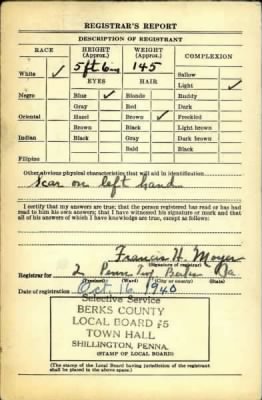 REGISTRAR'S REPORT
DESCRIPTION OF REGISTRANT
RACE HEIGHT (Approx.) WEIGHT (Approx.) COMPLEXION
White ✓ 5 ft 6 in 145 Sallow
EYES HAIR Light ✓
Negro Blue ✓ Blonde Ruddy
Gray Red Dark
Oriental Hazel Brown ✓ Freckled
Brown Black Light brown
Indian Black Gray Dark brown
Bald Black
Filipino
Other obvious physical characteristics that will aid in identification
Scar on left hand
I certify that my answers are true; that the person registered has read or has had read to him his own answers; that I have witnessed his signature or mark and that all of his answers of which I have knowledge are true, except as follows:
Francis H. Moyer
Registrar for 2 Penn Twp Berks Pa
(Precinct) (Ward) (City or county) (State)
Date of registration Oct 16 1940
Selective Service
BERKS COUNTY
LOCAL BOARD #5
TOWN HALL
SHILLINGTON, PENNA.
(STAMP OF LOCAL BOARD)
(The stamp of the Local Board having jurisdiction of the registrant shall be placed in the above space.)